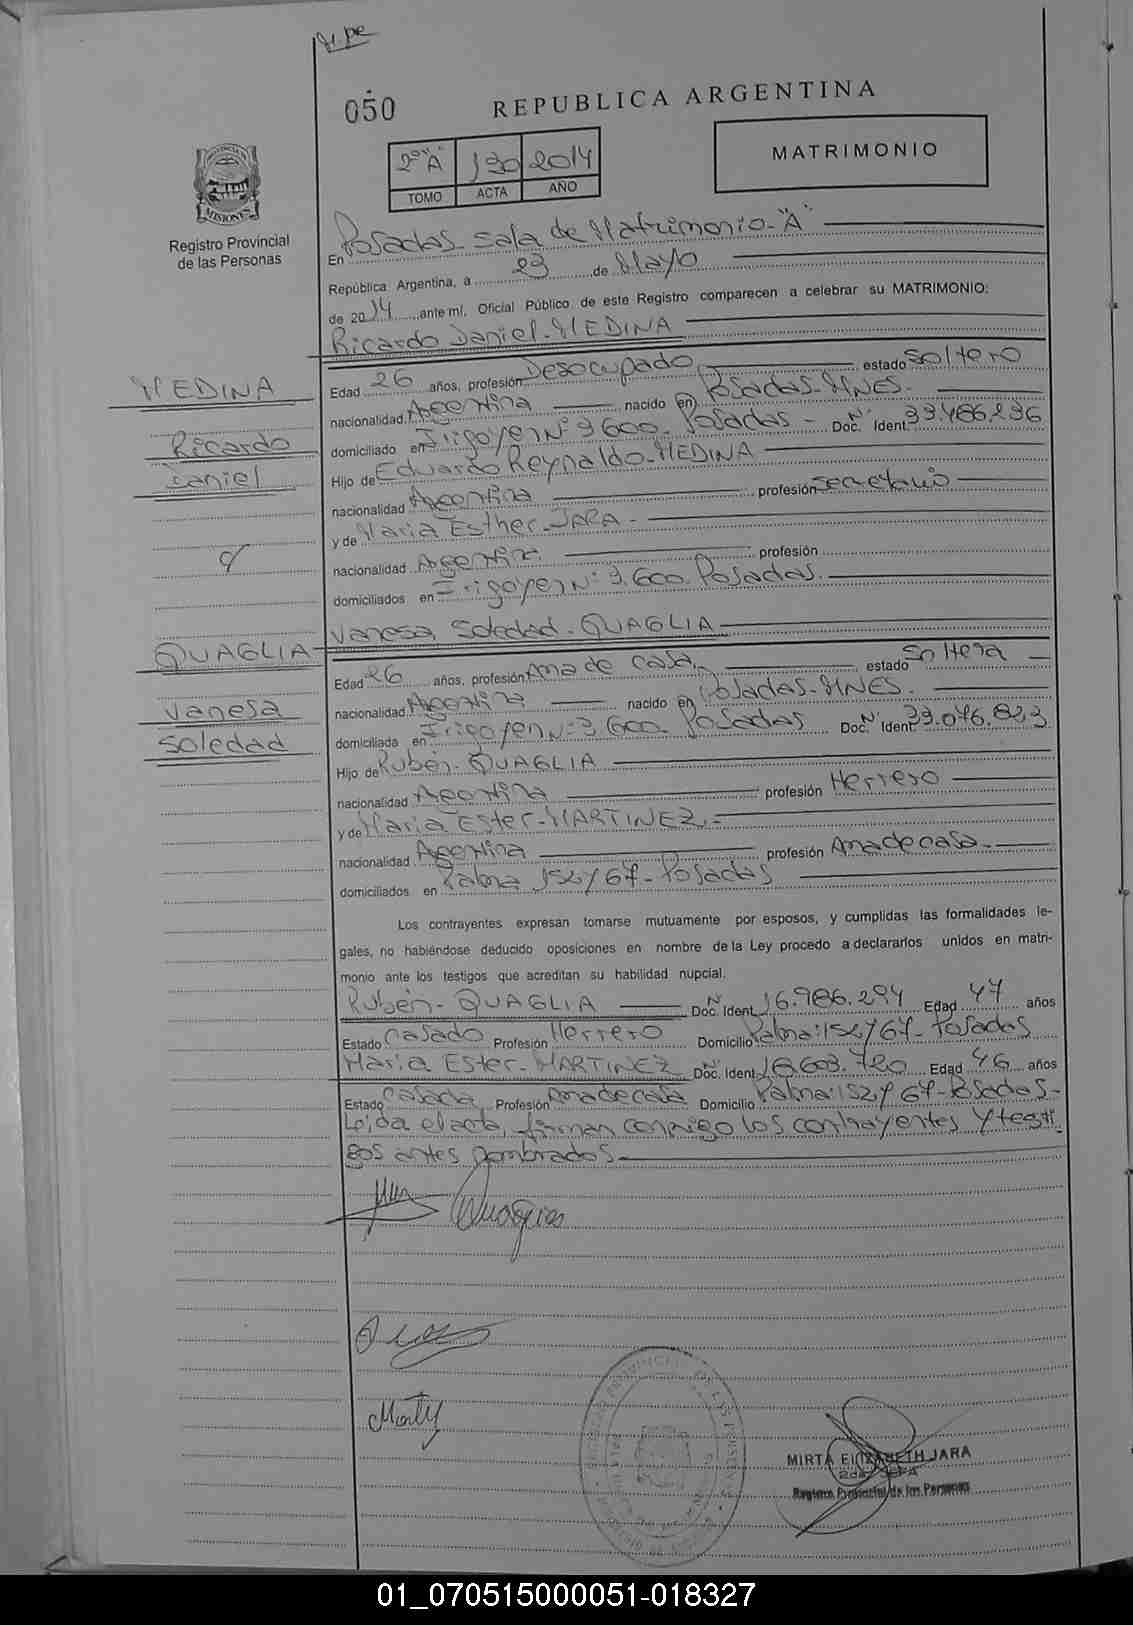 050
REPUBLICA ARGENTINA
2º "A" 190 2014
TOMO ACTA AÑO
MATRIMONIO
MISIONES
Registro Provincial
de las Personas
En Posadas - Sala de Matrimonio - "A"
República Argentina, a 23 de Mayo
de 2014 ante mí, Oficial Público de este Registro comparecen a celebrar su MATRIMONIO:
Ricardo Daniel - MEDINA
MEDINA
Ricardo
Daniel
Edad 26 años, profesión Desocupado estado Soltero
nacionalidad Argentina nacido en Posadas - MNES.
domiciliado en Irigoyen Nº 3.600. Posadas - Doc. Nº Ident. 33.486.296
Hijo de Eduardo Reynaldo - MEDINA
nacionalidad Argentina profesión Secretario
y de Maria Esther - JARA -
nacionalidad Argentina profesión
domiciliados en Irigoyen Nº 3.600. Posadas.
Vanesa Soledad - QUAGLIA
QUAGLIA
Vanesa
Soledad
Edad 26 años, profesión Ama de casa estado Soltera
nacionalidad Argentina nacido en Posadas - MNES.
domiciliada en Irigoyen Nº 3.600. Posadas Doc. Nº Ident. 33.076.823
Hijo de Rubén - QUAGLIA
nacionalidad Argentina profesión Herrero
y de Maria Ester - MARTINEZ -
nacionalidad Argentina profesión Ama de casa
domiciliados en Palma 152 y 67 - Posadas
Los contrayentes expresan tomarse mutuamente por esposos, y cumplidas las formalidades le-
gales, no habiéndose deducido oposiciones en nombre de la Ley procedo a declararlos unidos en matri-
monio ante los testigos que acreditan su habilidad nupcial.
Rubén - QUAGLIA Doc. Nº Ident. 16.986.294 Edad 47 años
Estado Casado Profesión Herrero Domicilio Palma: 152 y 67 - Posadas
Maria Ester - MARTINEZ Doc. Nº Ident. 18.603.720 Edad 46 años
Estado Casada Profesión Ama de casa Domicilio Palma: 152 y 67 - Posadas -
Leída el acta, firman conmigo los contrayentes y testi
gos antes nombrados -
MIRTA ELIZABETH JARA
2da JEFA
Registro Provincial de las Personas
01_070515000051-018327